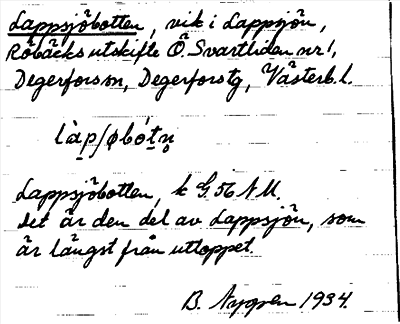 Lappsjöbotten, vik i Lappsjön,
Röbäcks utskifte Ö. Svartliden nr 1,
Degerfors sn, Degerfors tg, Västerb. l.
Lappsjöbotten, k G. 56 N M.
Det är den del av Lappsjön, som
är längst från utloppet.
B. Nygren 1934.